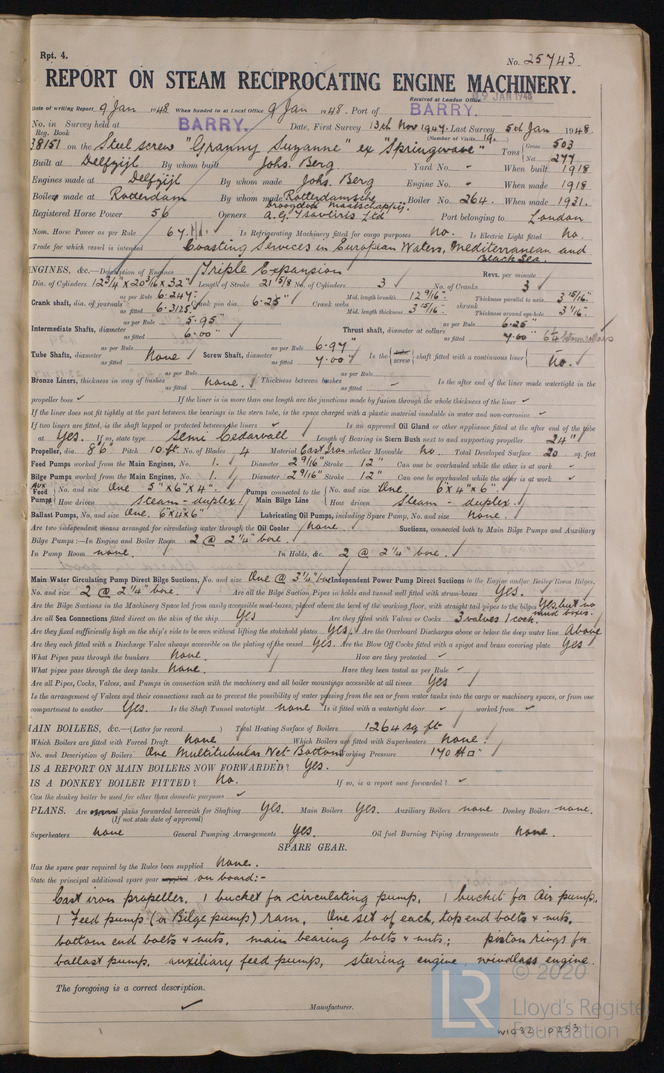 Rpt. 4.
No. 25743
REPORT ON STEAM RECIPROCATING ENGINE MACHINERY.
Received at London Office 9 JAN 1948
Date of writing Report 9 Jan 1948 When handed in at Local Office 9 Jan 1948. Port of BARRY.
No. in Reg. Book Survey held at BARRY. Date, First Survey 13th Nov 1947. Last Survey 5th Jan 1948
(Number of Visits 19.)
38151 on the Steel screw "Granny Suzanne" ex "Springwave" Tons Gross 503 Net 277
Built at Delfzijl By whom built Johs. Berg Yard No. When built 1918
Engines made at Delfzijl By whom made Johs. Berg Engine No. When made 1918
Boilers made at Rotterdam By whom made Rotterdamsche Droogdok Maatschappij. Boiler No. 264. When made 1931.
Registered Horse Power 56 Owners A.G. Tsavliris Ltd Port belonging to London
Nom. Horse Power as per Rule 67 Is Refrigerating Machinery fitted for cargo purposes no. Is Electric Light fitted no.
Trade for which vessel is intended Coasting Services in European Waters, Mediterranean and Black Sea.
ENGINES, &c.—Description of Engines Triple Expansion Revs. per minute
Dia. of Cylinders 12 3/4" x 20 3/16" x 32" Length of Stroke 21 5/8 No. of Cylinders 3 No. of Cranks 3
Crank shaft, dia. of journals as per Rule 6.247" as fitted 6.3125 Crank pin dia. 6.25" Crank webs Mid. length breadth 12 9/16" Mid. length thickness 3 15/16" shrunk Thickness parallel to axis 3 15/16" Thickness around eye-hole 3 1/16"
Intermediate Shafts, diameter as per Rule 5.95" as fitted 6.00" Thrust shaft, diameter at collars as per Rule 6.25" as fitted 7.00"
Tube Shafts, diameter as per Rule as fitted None Screw Shaft, diameter as per Rule 6.97" as fitted 7.00" Is the tube screw shaft fitted with a continuous liner no.
Bronze Liners, thickness in way of bushes as per Rule as fitted none. Thickness between bushes as per Rule as fitted Is the after end of the liner made watertight in the
propeller boss If the liner is in more than one length are the junctions made by fusion through the whole thickness of the liner
If the liner does not fit tightly at the part between the bearings in the stern tube, is the space charged with a plastic material insoluble in water and non-corrosive
If two liners are fitted, is the shaft lapped or protected between the liners Is an approved Oil Gland or other appliance fitted at the after end of the tube
at Yes. If so, state type Semi Cedarvall Length of Bearing in Stern Bush next to and supporting propeller 24"
Propeller, dia. 8' 6" Pitch 10 ft. No. of Blades 4 Material Cast Iron whether Moveable no. Total Developed Surface 20 sq. feet
Feed Pumps worked from the Main Engines, No. 1. Diameter 2 9/16" Stroke 12" Can one be overhauled while the other is at work
Bilge Pumps worked from the Main Engines, No. 1. Diameter 2 9/16" Stroke 12" Can one be overhauled while the other is at work
Aux Feed Pumps No. and size One 5" x 6" x 4" How driven Steam - duplex Pumps connected to the Main Bilge Line No. and size One, 6 x 4" x 6" How driven Steam - duplex.
Ballast Pumps, No. and size One. 6" x 4" x 6" Lubricating Oil Pumps, including Spare Pump, No. and size none.
Are two independent means arranged for circulating water through the Oil Cooler none Suctions, connected both to Main Bilge Pumps and Auxiliary
Bilge Pumps:—In Engine and Boiler Room 2 @ 2 1/4" bore.
In Pump Room none. In Holds, &c. 2 @ 2 1/4" bore.
Main Water Circulating Pump Direct Bilge Suctions, No. and size One @ 3 1/4" bore Independent Power Pump Direct Suctions to the Engine and/or Boiler Room Bilges,
No. and size 2 @ 2 1/4" bore. Are all the Bilge Suction Pipes in holds and tunnel well fitted with strum-boxes Yes.
Are the Bilge Suctions in the Machinery Space led from easily accessible mud-boxes, placed above the level of the working floor, with straight tail pipes to the bilges Yes, but no mud boxes.
Are all Sea Connections fitted direct on the skin of the ship Yes Are they fitted with Valves or Cocks 3 valves 1 cock.
Are they fixed sufficiently high on the ship's side to be seen without lifting the stokehold plates Yes. Are the Overboard Discharges above or below the deep water line Above
Are they each fitted with a Discharge Valve always accessible on the plating of the vessel Yes. Are the Blow Off Cocks fitted with a spigot and brass covering plate Yes
What Pipes pass through the bunkers None. How are they protected
What pipes pass through the deep tanks None. Have they been tested as per Rule
Are all Pipes, Cocks, Valves, and Pumps in connection with the machinery and all boiler mountings accessible at all times Yes
Is the arrangement of Valves and their connections such as to prevent the possibility of water passing from the sea or from water tanks into the cargo or machinery spaces, or from one
compartment to another Yes. Is the Shaft Tunnel watertight none Is it fitted with a watertight door worked from
MAIN BOILERS, &c.—(Letter for record ) Total Heating Surface of Boilers 1264 sq ft
Which Boilers are fitted with Forced Draft None Which Boilers are fitted with Superheaters None.
No. and Description of Boilers One Multitubular Wet Bottom Working Pressure 170 #□"
IS A REPORT ON MAIN BOILERS NOW FORWARDED? Yes.
IS A DONKEY BOILER FITTED? No. If so, is a report now forwarded?
Can the donkey boiler be used for other than domestic purposes
PLANS. Are plans forwarded herewith for Shafting Yes. Main Boilers Yes. Auxiliary Boilers none Donkey Boilers none.
(If not state date of approval)
Superheaters None General Pumping Arrangements Yes. Oil fuel Burning Piping Arrangements None.
SPARE GEAR.
Has the spare gear required by the Rules been supplied None.
State the principal additional spare gear supplied on board:-
Cast iron propeller, 1 bucket for circulating pump, 1 bucket for Air pump,
1 Feed pump (or Bilge pump) ram, One set of each, top end bolts & nuts,
bottom end bolts & nuts, main bearing bolts & nuts; piston rings for
ballast pump, auxiliary feed pump, steering engine windlass engine.
The foregoing is a correct description.
Manufacturer.
LR
© 2020
Lloyd's Register
Foundation
W1092-0253